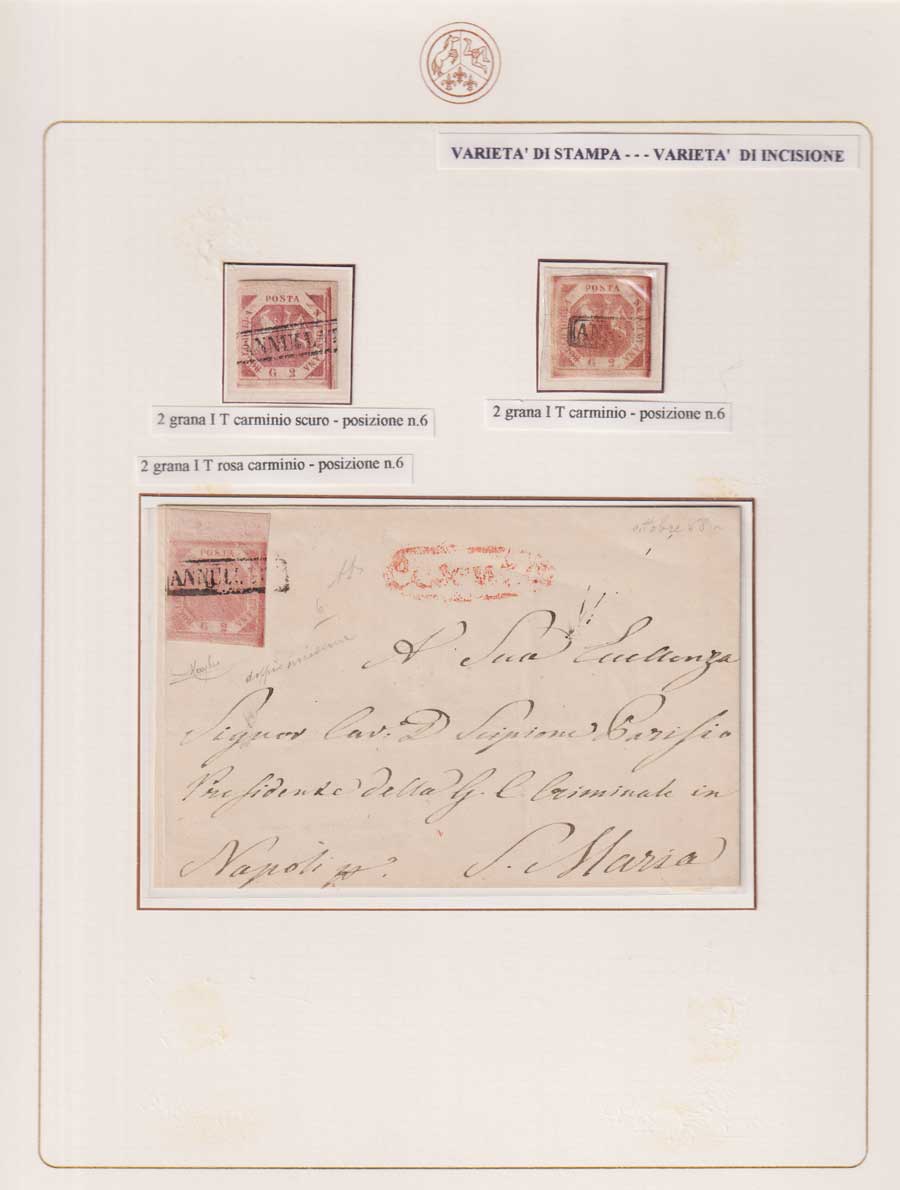 VARIETA' DI STAMPA - - - VARIETA' DI INCISIONE
POSTA
ANNULL
G 2
POSTA
AN
G 2
2 grana I T carminio scuro - posizione n.6
2 grana I T carminio - posizione n.6
2 grana I T rosa carminio - posizione n.6
POSTA
ANNULL
G 2
ottobre 58
6
A Sua Eccellenza
Signor Cav. D Scipione Parisio
Presidente della G. C. Criminale in
Napoli S. Maria